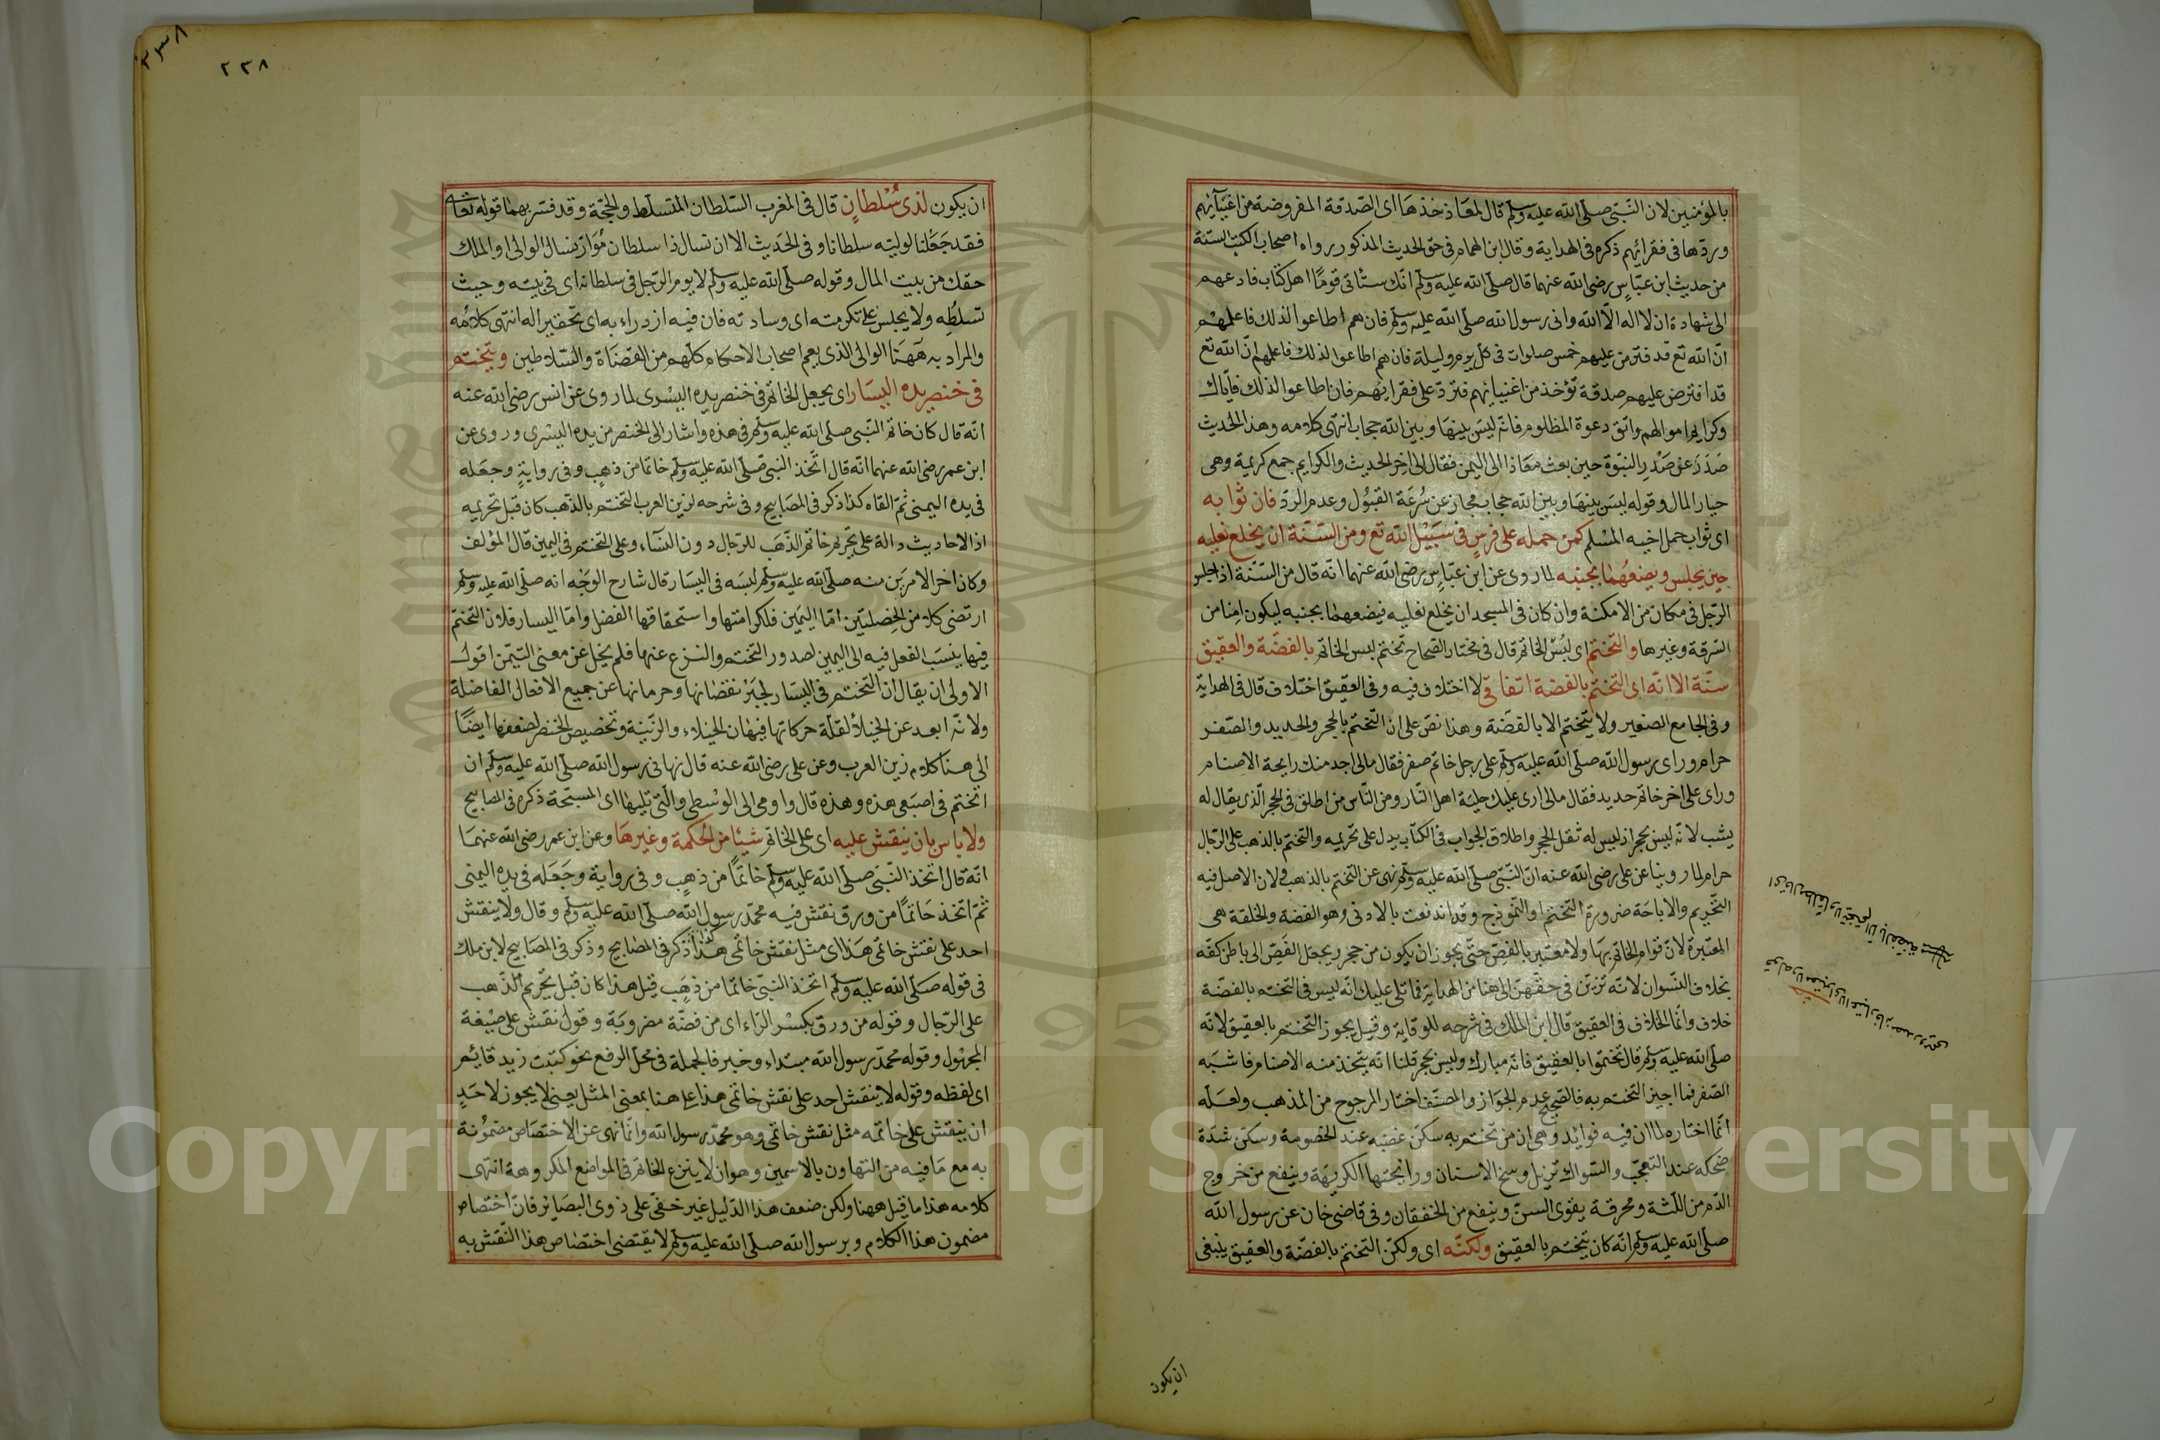 بالمؤمنين لان النبى صلى الله عليه وسلم قال لمعاذ خذها اى الصدقة المفروضة من اغنيآئهم
وردها فى فقرائهم ذكره فى الهداية وقال ابن الهمام فى حق الحديث المذكور رواه اصحاب الكتب الستة
من حديث ابن عباس رضى الله عنهما قال صلى الله عليه وسلم انك ستأتى قوما اهل كتاب فادعهم
الى شهادة ان لا اله الا الله وانى رسول الله صلى الله عليه وسلم فان هم اطاعوا لذلك فاعلمهم
ان الله تع قد افترض عليهم خمس صلوات فى كل يوم وليلة فان هم اطاعوا لذلك فاعلمهم ان الله تع
قد افترض عليهم صدقة تؤخذ من اغنيائهم فترد على فقرائهم فان اطاعوا لذلك فاياك
وكرايم اموالهم واتق دعوة المظلوم فانه ليس بينها وبين الله حجاب انتهى كلامه وهذا الحديث
صدر عن صدر النبوة حين بعث معاذا الى اليمن فقال الى اخر الحديث والكرايم جمع كريمة وهى
خيار المال وقوله ليس بينها وبين الله حجاب مجاز عن سرعة القبول وعدم الرد فان ثوابه
اى ثواب حمل اخيه المسلم كمن حمله على فرس فى سبيل الله تع ومن السنة ان يخلع نعليه
حين يجلس ويضعهما بجنبه لما روى عن ابن عباس رضى الله عنهما انه قال من السنة اذا جلس
الرجل فى مكان من الامكنة وان كان فى المسجد ان يخلع نعليه فيضعهما بجنبه ليكون امنا من
السرقة وغيرها والتختم اى لبس الخاتم قال فى مختار الصحاح تختم لبس الخاتم بالفضة والعقيق
سنة الا انه اى التختم بالفضة اتفاقى لا اختلاف فيه وفى العقيق اختلاف قال فى الهداية
وفى الجامع الصغير ولا يتختم الا بالفضة وهذا نص على ان التختم بالحجر والحديد والصفر
حرام وراى رسول الله صلى الله عليه وسلم على رجل خاتم صفر فقال مالى اجد منك رايحة الاصنام
وراى على اخر خاتم حديد فقال مالى ارى عليك حلية اهل النار ومن الناس من اطلق فى الحجر الذى يقال له
يشب لانه ليس بحجر اذ ليس له ثقل الحجر واطلاق الجواب فى الكتاب يدل على تحريمه والتختم بالذهب على الرجال
حرام لما روينا عن على رضى الله عنه ان النبى صلى الله عليه وسلم نهى عن التختم بالذهب ولان الاصل فيه
التحريم والاباحة ضرورة التختم او النموذج وقد اندفعت بالادنى وهو الفضة والحلقة هى
المعتبرة لان قوام الخاتم بها ولا معتبر بالفص حتى يجوز ان يكون من حجر ويجعل الفص الى باطن كفه
بخلاف النسوان لانه تزين فى حقهن الى هنا من الهداية فما تلى عليك انه ليس فى التختم بالفضة
خلاف وانما الخلاف فى العقيق قال ابن الملك فى شرحه للوقاية وقيل يجوز التختم بالعقيق لانه
صلى الله عليه وسلم قال تختموا بالعقيق فانه مبارك وليس بحجر قلنا انه يتخذ منه الاصنام فاشبه
الصفر فما اجيز التختم به فالصحيح عدم الجواز والمصنف اختار المرجوح من المذهب ولعله
انما اختاره لما ان فيه فوايد وهى ان من تختم به سكن غضبه عند الخصومة وسكن شدة
ضحكه عند التعجب والسواك تزيل وسخ الاسنان ورايحتها الكريهة وينفع من خروج
الدم من اللثة ومحرقة يقوى السن وينفع من الخفقان وفى قاضى خان عن رسول الله
صلى الله عليه وسلم انه كان يتختم بالعقيق ولكنه اى ولكن التختم بالفضة والعقيق ينبغى
ان يكون
٢٣٨
ان يكون لذى سلطان قال فى المغرب السلطان المتسلط والحجة وقد فسر بهما قوله تعالى
فقد جعلنا لوليه سلطانا وفى الحديث الا ان تسال ذا سلطان مؤاز تسال الوالى او الملك
حقك من بيت المال وقوله صلى الله عليه وسلم لا يوم الرجل فى سلطانه اى فى بيته وحيث
تسلطه ولا يجلس على تكرمته اى وسادته فان فيه ازدراء به اى تحقيرا له انتهى كلامه
والمراد به ههنا الوالى الذى يعم اصحاب الاحكام كلهم من القضاة والسلاطين ويتختم
فى خنصر يده اليسار اى يجعل الخاتم فى خنصر يده اليسرى لما روى عن انس رضى الله عنه
انه قال كان خاتم النبى صلى الله عليه وسلم فى هذه واشار الى الخنصر من يده اليسرى وروى عن
ابن عمر رضى الله عنهما انه قال اتخذ النبى صلى الله عليه وسلم خاتما من ذهب وفى رواية وجعله
فى يده اليمنى ثم القاه كذا ذكر فى المصابيح وفى شرحه لزين العرب التختم بالذهب كان قبل تحريمه
اذ الاحاديث دالة على تحريم خاتم الذهب للرجال دون النساء وعلى التختم فى اليمين قال المؤلف
وكان اخر الامرين منه صلى الله عليه وسلم لبسه فى اليسار قال شارح الوجه انه صلى الله عليه وسلم
ارتضى كلا من الخصلتين اما اليمين فلكرامتها واستحقاقها الفضل واما اليسار فلان التختم
فيها ينسب الفعل فيه الى اليمين لصدور التختم والنزع عنها فلم يخل عن معنى التيمن اقول
الاولى ان يقال ان التختم فى اليسار لجبر نقصانها وحرمانها عن جميع الافعال الفاضلة
ولانه ابعد عن الخيلاء لقلة حركاتها فيهان الخيلاء والزينة وتخصيص الخنصر لضعفها ايضا
الى هنا كلام زين العرب وعن على رضى الله عنه قال نهانى رسول الله صلى الله عليه وسلم ان
اتختم فى اصبعى هذه وهذه قال واومى الى الوسطى والتى تليها اى المسبحة ذكره فى المصابيح
ولا باس بان ينقش عليه اى على الخاتم شيئا من الحكمة وغيرها وعن ابن عمر رضى الله عنهما
انه قال اتخذ النبى صلى الله عليه وسلم خاتما من ذهب وفى رواية وجعله فى يده اليمنى
ثم اتخذ خاتما من ورق نقش فيه محمد رسول الله صلى الله عليه وسلم وقال ولا ينقش
احد على نقش خاتمى هذا اى مثل نقش خاتمى هذا كذا ذكر فى المصابيح وذكر فى المصابيح لابن ملك
فى قوله صلى الله عليه وسلم اتخذ النبى خاتما من ذهب قيل هذا كان قبل تحريم الذهب
على الرجال وقوله من ورق بكسر الراء اى من فضة مضروبة وقوله نقش على صيغة
المجهول وقوله محمد رسول الله مبتداء وخبر فالجملة فى محل الرفع نحو كتبت زيد قائم
اى لفظه وقوله لا ينقش احد على نقش خاتمى هذا على هنا بمعنى المثل يعنى لا يجوز لاحد
ان ينقش على خاتمه مثل نقش خاتمى وهو محمد رسول الله وانما نهى عن الاختصاص مضمونة
به مع ما فيه من التهاون بالاسمين وهو ان لا ينزع الخاتم فى المواضع المكروهة انتهى
كلامه هذا ما قيل ههنا ولكن ضعف هذا الدليل غير خفى على ذوى البصائر فان اختصاص
مضمون هذا الكلام وبرسول الله صلى الله عليه وسلم لا يقتضى اختصاص هذا النقش به
Copyright © King Saud University